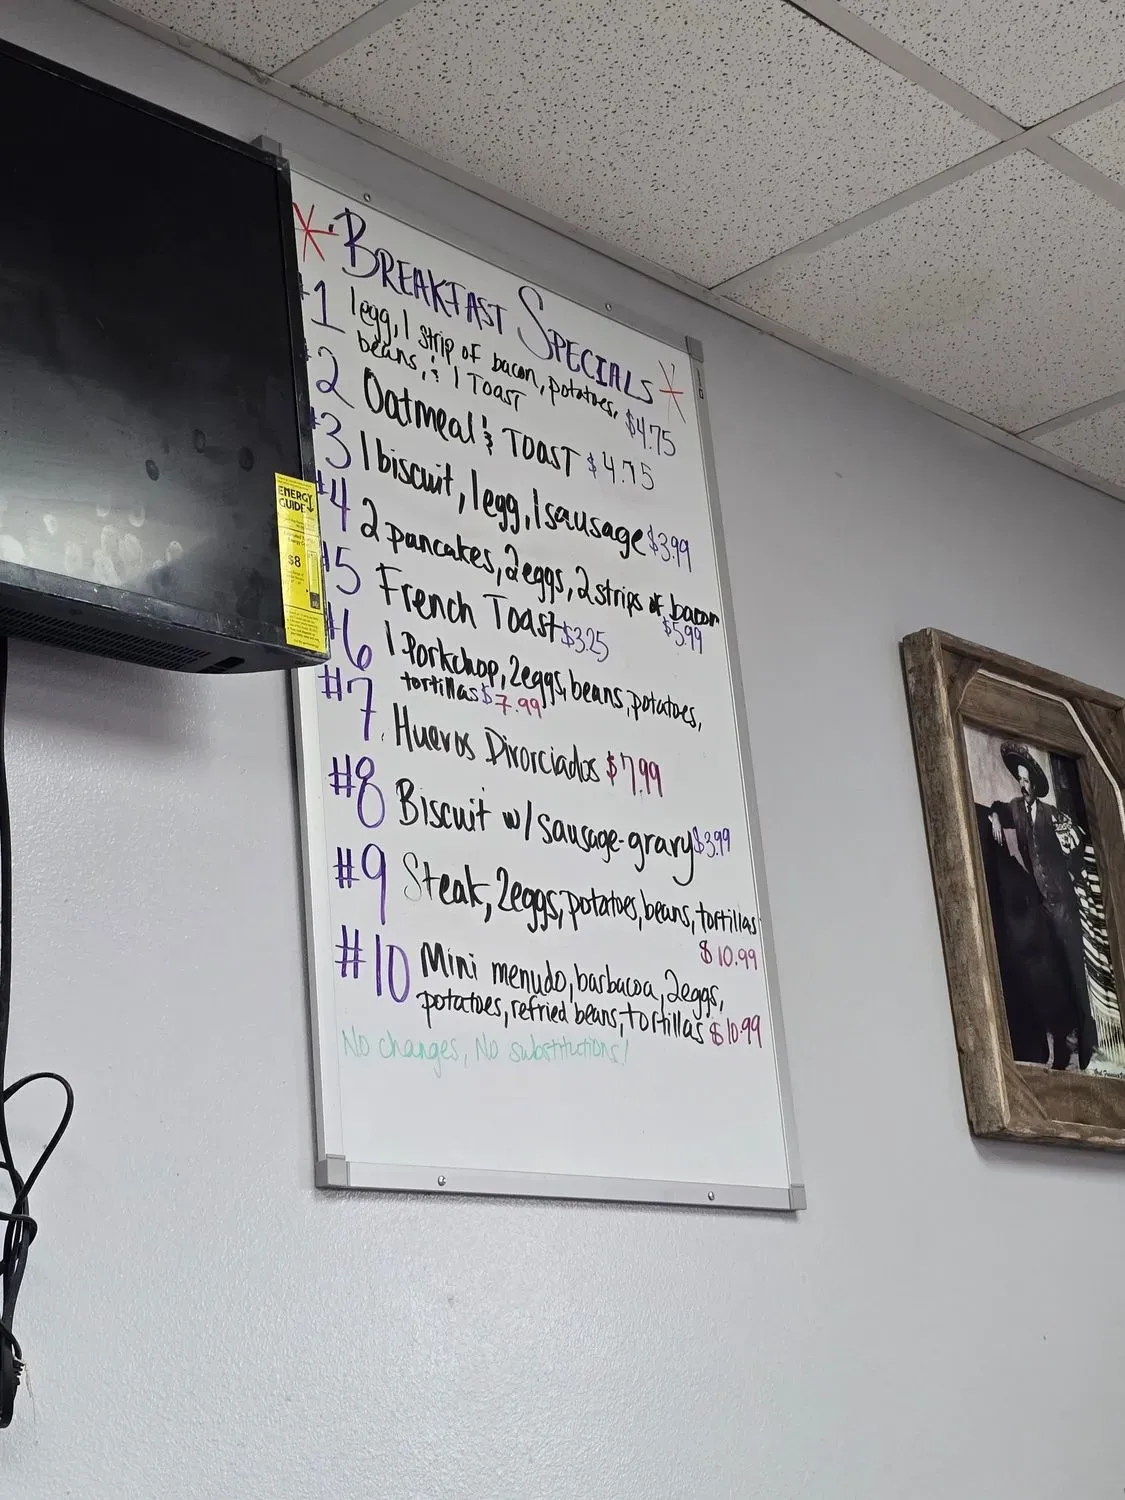 * BREAKFAST SPECIALS *
#1 1 egg, 1 strip of bacon, potatoes,
beans, & 1 TOAST $4.75
#2 Oatmeal & TOAST $4.75
#3 1 biscuit, 1 egg, 1 sausage $3.99
#4 2 pancakes, 2 eggs, 2 strips of bacon
$5.99
#5 French Toast $3.25
#6 1 Porkchop, 2 eggs, beans, potatoes,
tortillas $7.99
#7 Huevos Divorciados $7.99
#8 Biscuit w/ sausage-gravy $3.99
#9 Steak, 2 eggs, potatoes, beans, tortillas
$10.99
#10 Mini menudo, barbacoa, 2 eggs,
potatoes, refried beans, tortillas $10.99
No changes, No substitutions!
ENERGY
GUIDE
$8